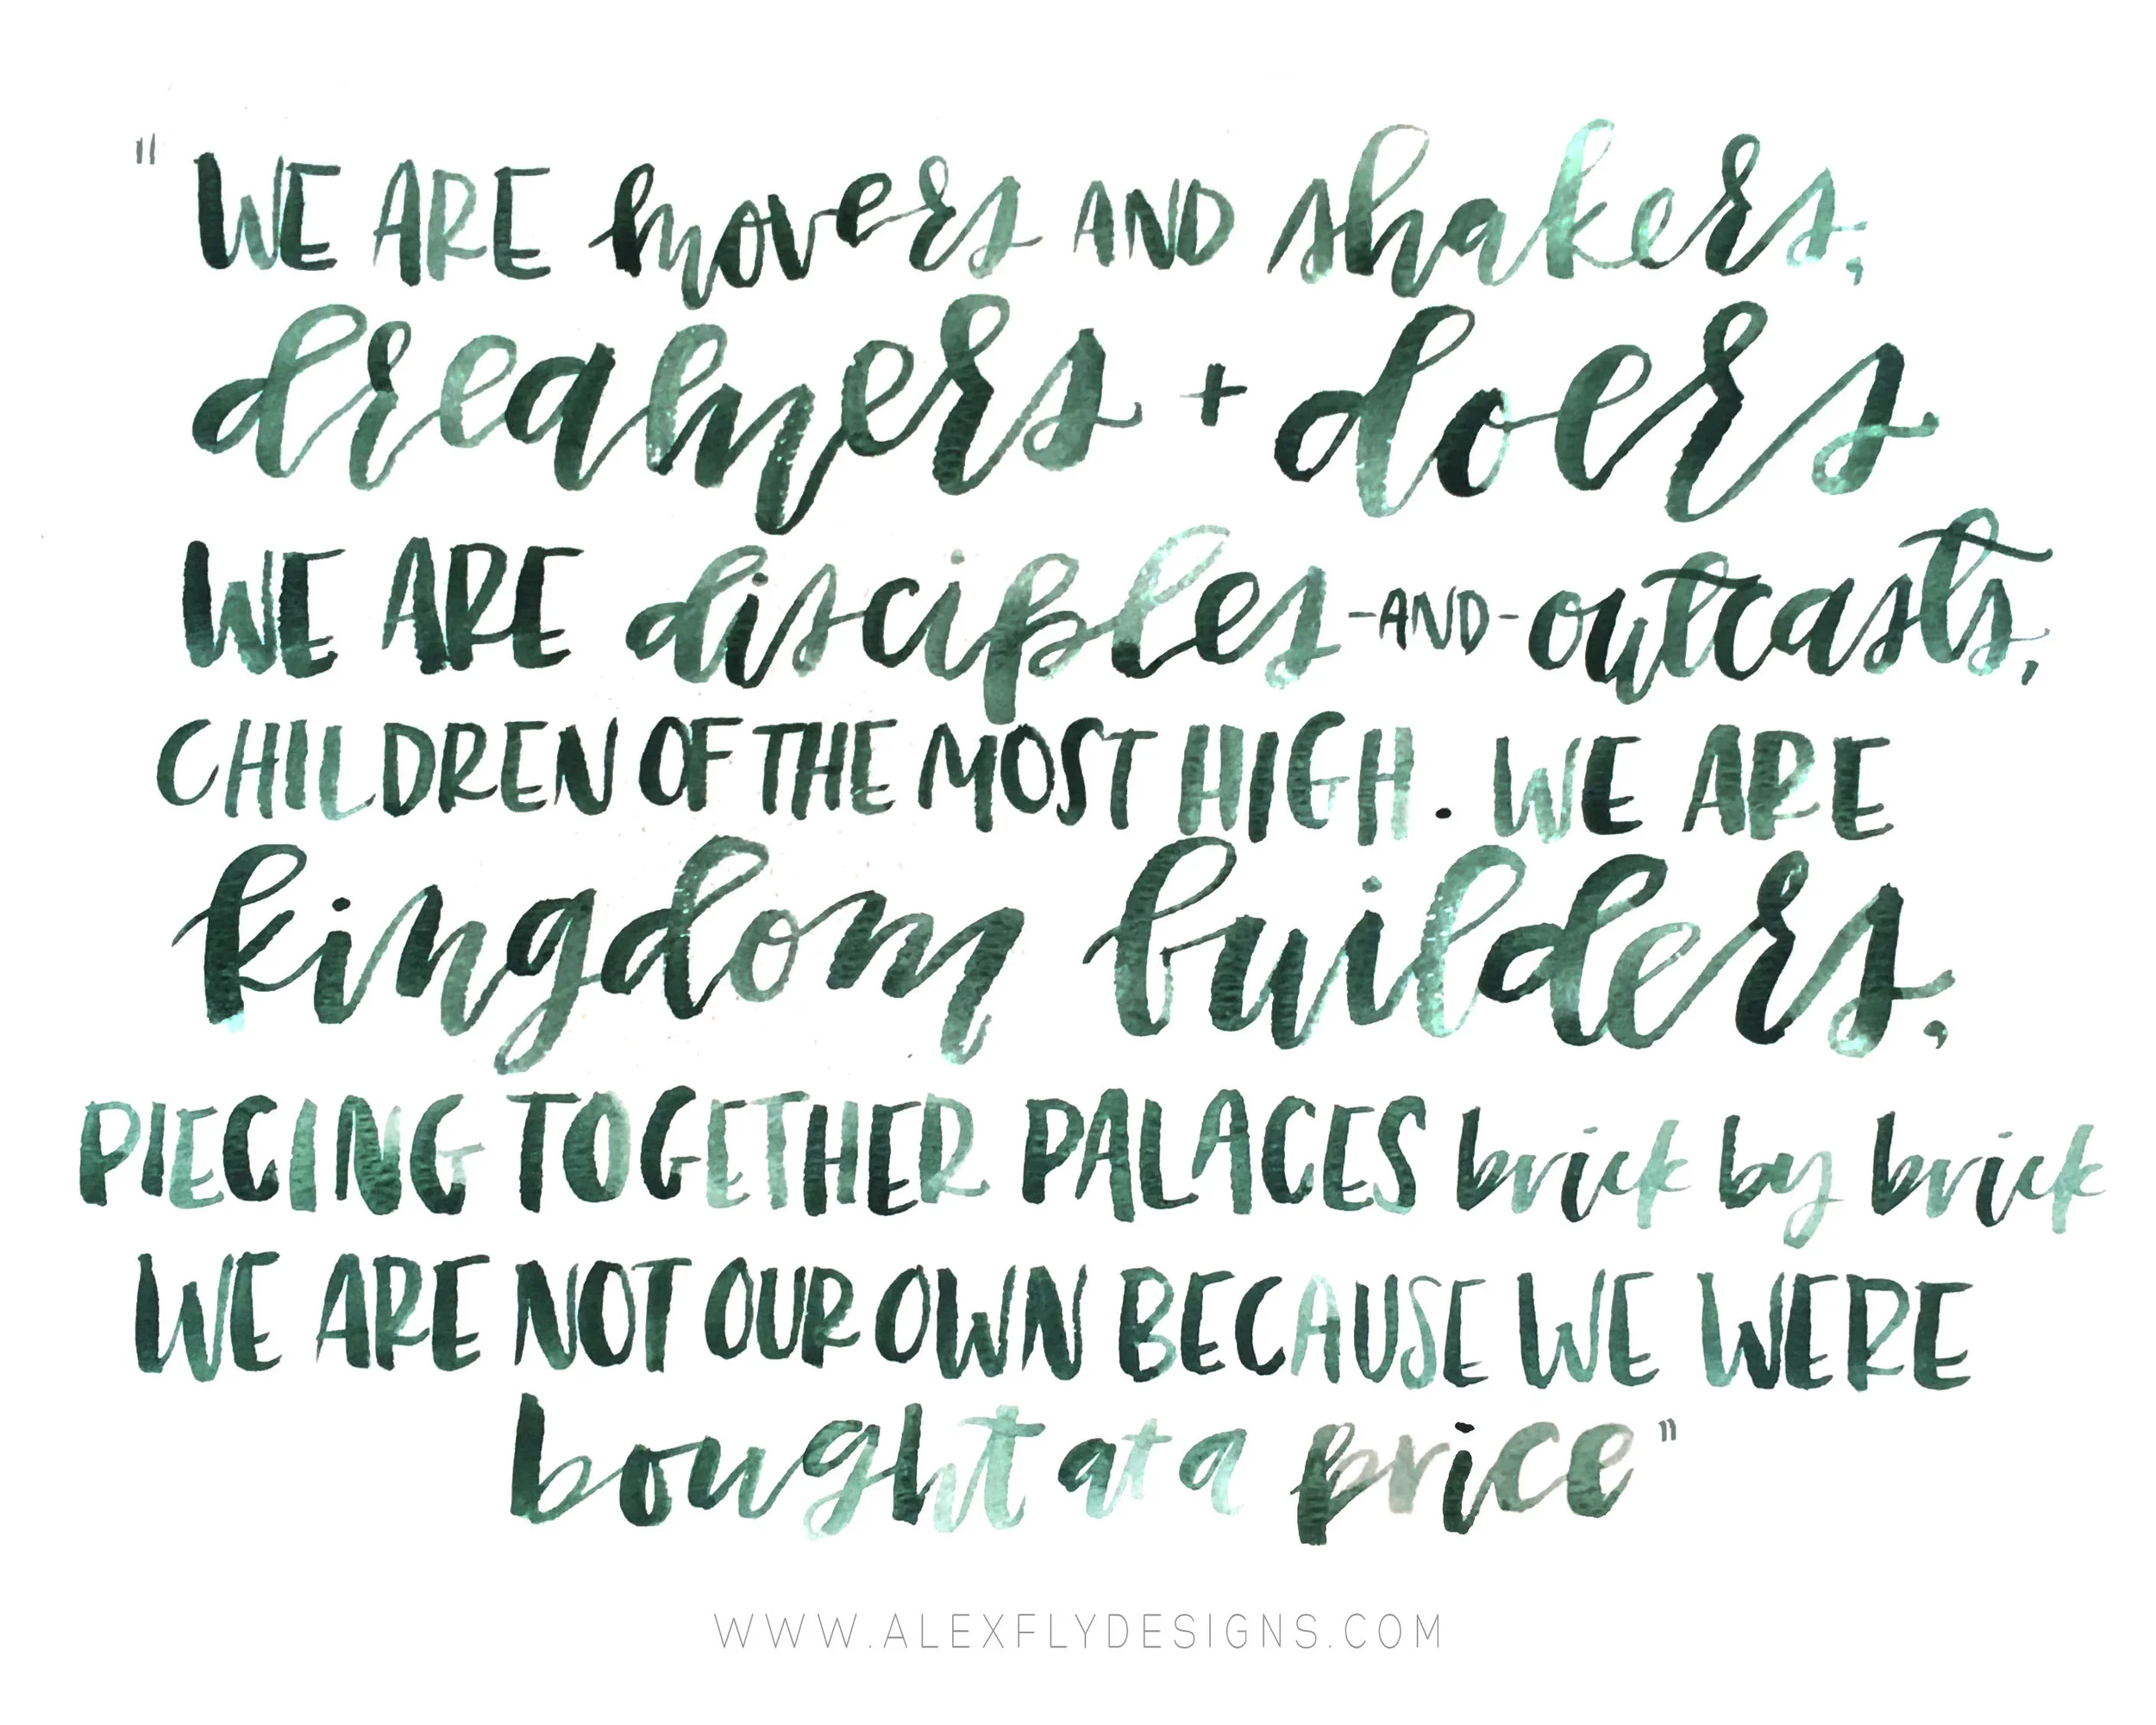 "WE ARE movers AND shakers;
dreamers + doers
WE ARE disciples -AND- outcasts,
CHILDREN OF THE MOST HIGH. WE ARE
kingdom builders,
PIECING TOGETHER PALACES brick by brick
WE ARE NOT OUR OWN BECAUSE WE WERE
bought at a price"
WWW.ALEXFLYDESIGNS.COM